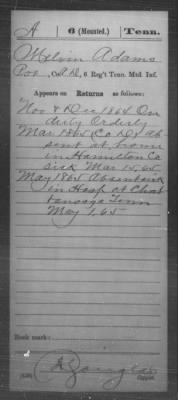 A 6 (Mounted.) Tenn.
Melvin Adams
Pvt., Co. A D, 6 Reg't Tenn. Mtd. Inf.
Appears on Returns as follows:
Nov & Dec 1864 On
duty Orderly
Mar 1865 (Co D) Ab
sent at home
in Hamilton Co
sick Mar 15, 65
May 1865 Absent sick
in Hosp at Chat
tanooga Tenn
May 1, 65
Book mark:
Copyist.